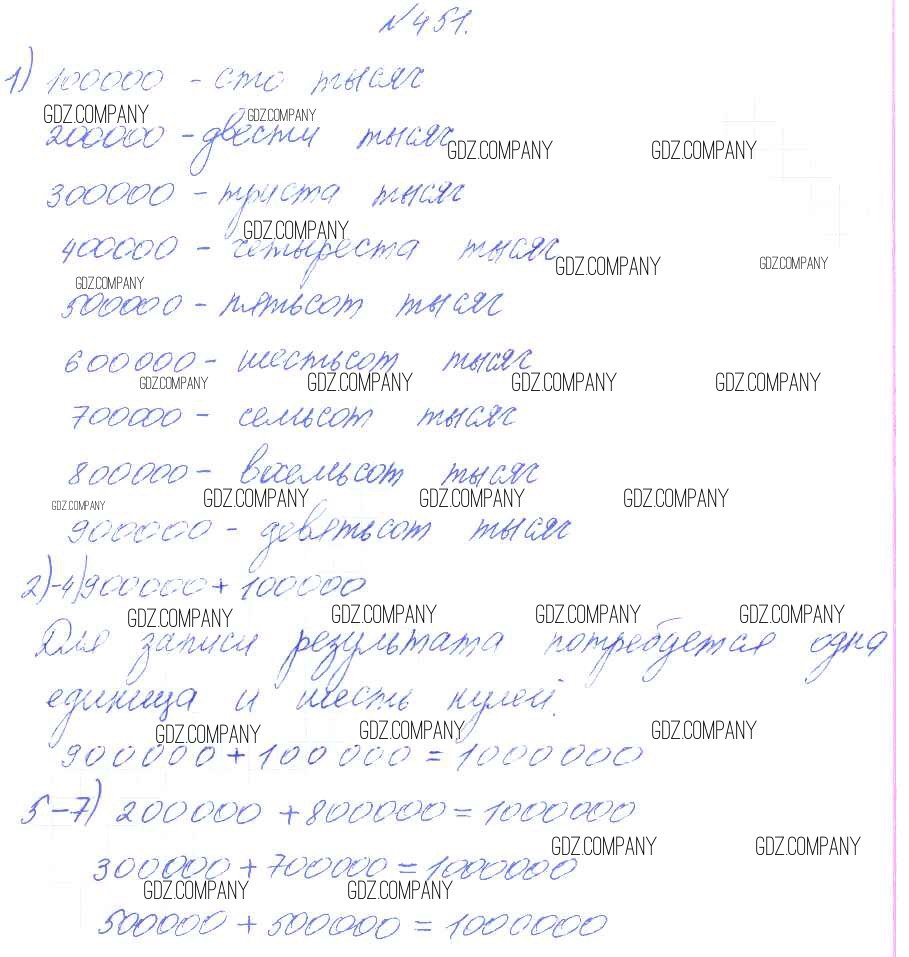 №451.
1) 100000 - сто тысяч
GDZ.COMPANY GDZ.COMPANY
200000 - двести тысяч
GDZ.COMPANY GDZ.COMPANY
300000 - триста тысяч
GDZ.COMPANY
400000 - четыреста тысяч
GDZ.COMPANY GDZ.COMPANY
GDZ.COMPANY
500000 - пятьсот тысяч
600000 - шестьсот тысяч
GDZ.COMPANY GDZ.COMPANY GDZ.COMPANY GDZ.COMPANY
700000 - семьсот тысяч
800000 - восемьсот тысяч
GDZ.COMPANY GDZ.COMPANY GDZ.COMPANY GDZ.COMPANY
900000 - девятьсот тысяч
2)-4) 900000 + 100000
GDZ.COMPANY GDZ.COMPANY GDZ.COMPANY GDZ.COMPANY
Для записи результата потребуется одна
единица и шесть нулей.
GDZ.COMPANY GDZ.COMPANY GDZ.COMPANY
900000 + 100000 = 1000000
5-7) 200000 + 800000 = 1000000
GDZ.COMPANY GDZ.COMPANY
300000 + 700000 = 1000000
GDZ.COMPANY GDZ.COMPANY
500000 + 500000 = 1000000